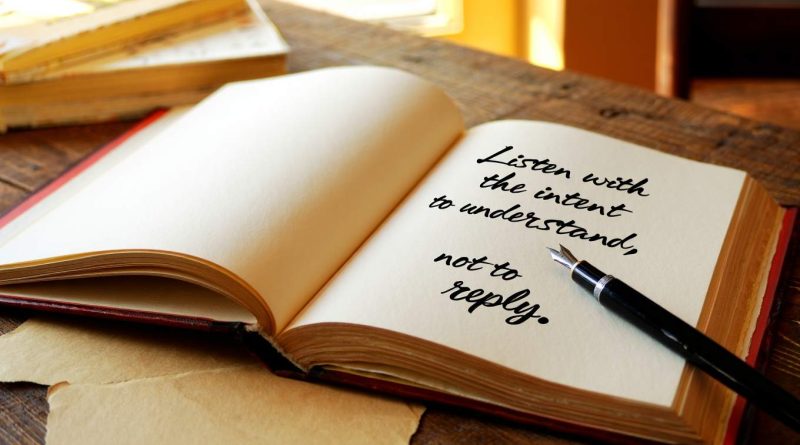 Listen with
the intent
to understand,
not to
reply.